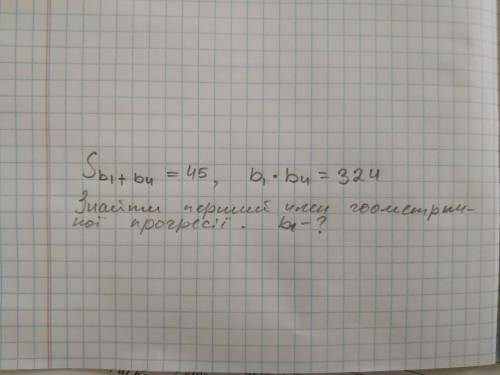 S b₁ + b₄ = 45, b₁ · b₄ = 324
Знайти перший член геометрич-
ної прогресії. b₁ - ?